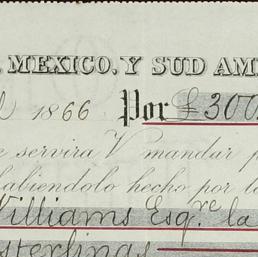 MEXICO. Y SUD AM
1866 Por £300
servira V mandar
hecho por
Williams Esqre la
sterlinas